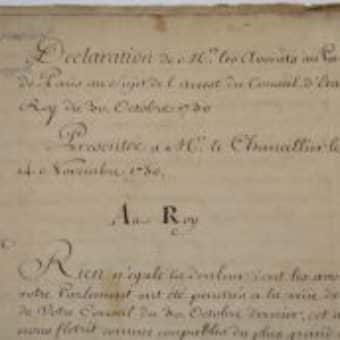 Declaration de Mrs. les Avocats au Par
de Paris au sujet de l'arrest du Conseil d'Etat
Roy du 30 Octobre 1730
Presentée a Mr. le Chancellier le
14e Novembre 1730.
Au Roy
Rien n'egale la douleur dont les avo
votre Parlement ont été penetrés a la vüe de
de Votre Conseil du 30. Octobre dernier, cet a
nous flétrit comme coupables du plus grand